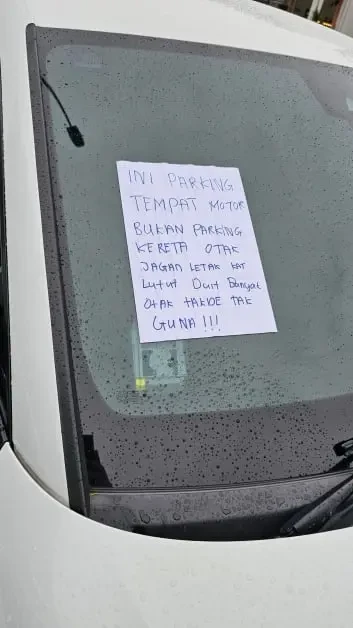 INI PARKING
TEMPAT MOTOR
BUKAN PARKING
KERETA OTAK
JAGAN LETAK KAT
Lutut Duit Banyak
OTAK TAKDE TAK
GUNA !!!